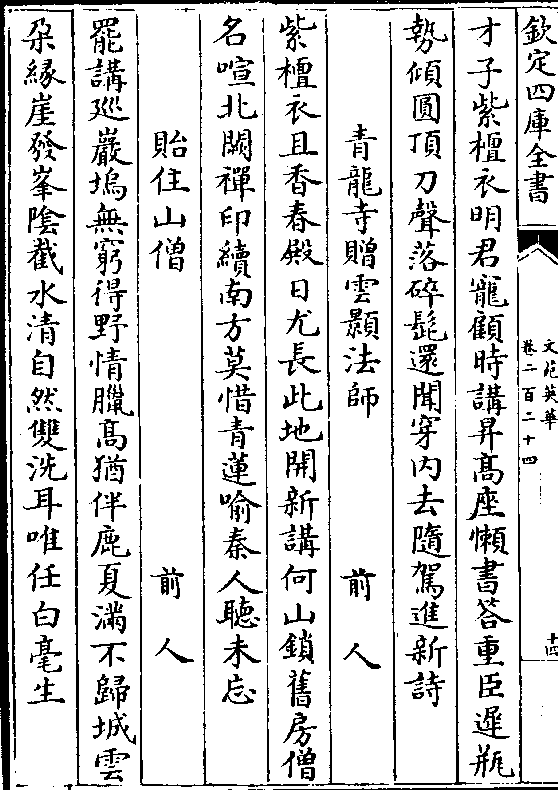 欽定四庫全書
文苑英華
卷二百二十四
十四
才子紫檀衣明君寵顧時講昇髙座懶書荅重臣遲瓶
勢傾圓頂刀聲落碎髭還聞穿内去隨駕進新詩
青龍寺贈雲顥法師 前人
紫檀衣且香春殿日尤長此地開新講何山鎖舊房僧
名喧北闕禪印續南方莫惜青蓮喻秦人聽未忘
貽住山僧 前人
罷講廵巖塢無窮得野情臘髙猶伴鹿夏滿不歸城雲
朶緣崖發峯陰截水清自然雙洗耳唯任白毫生